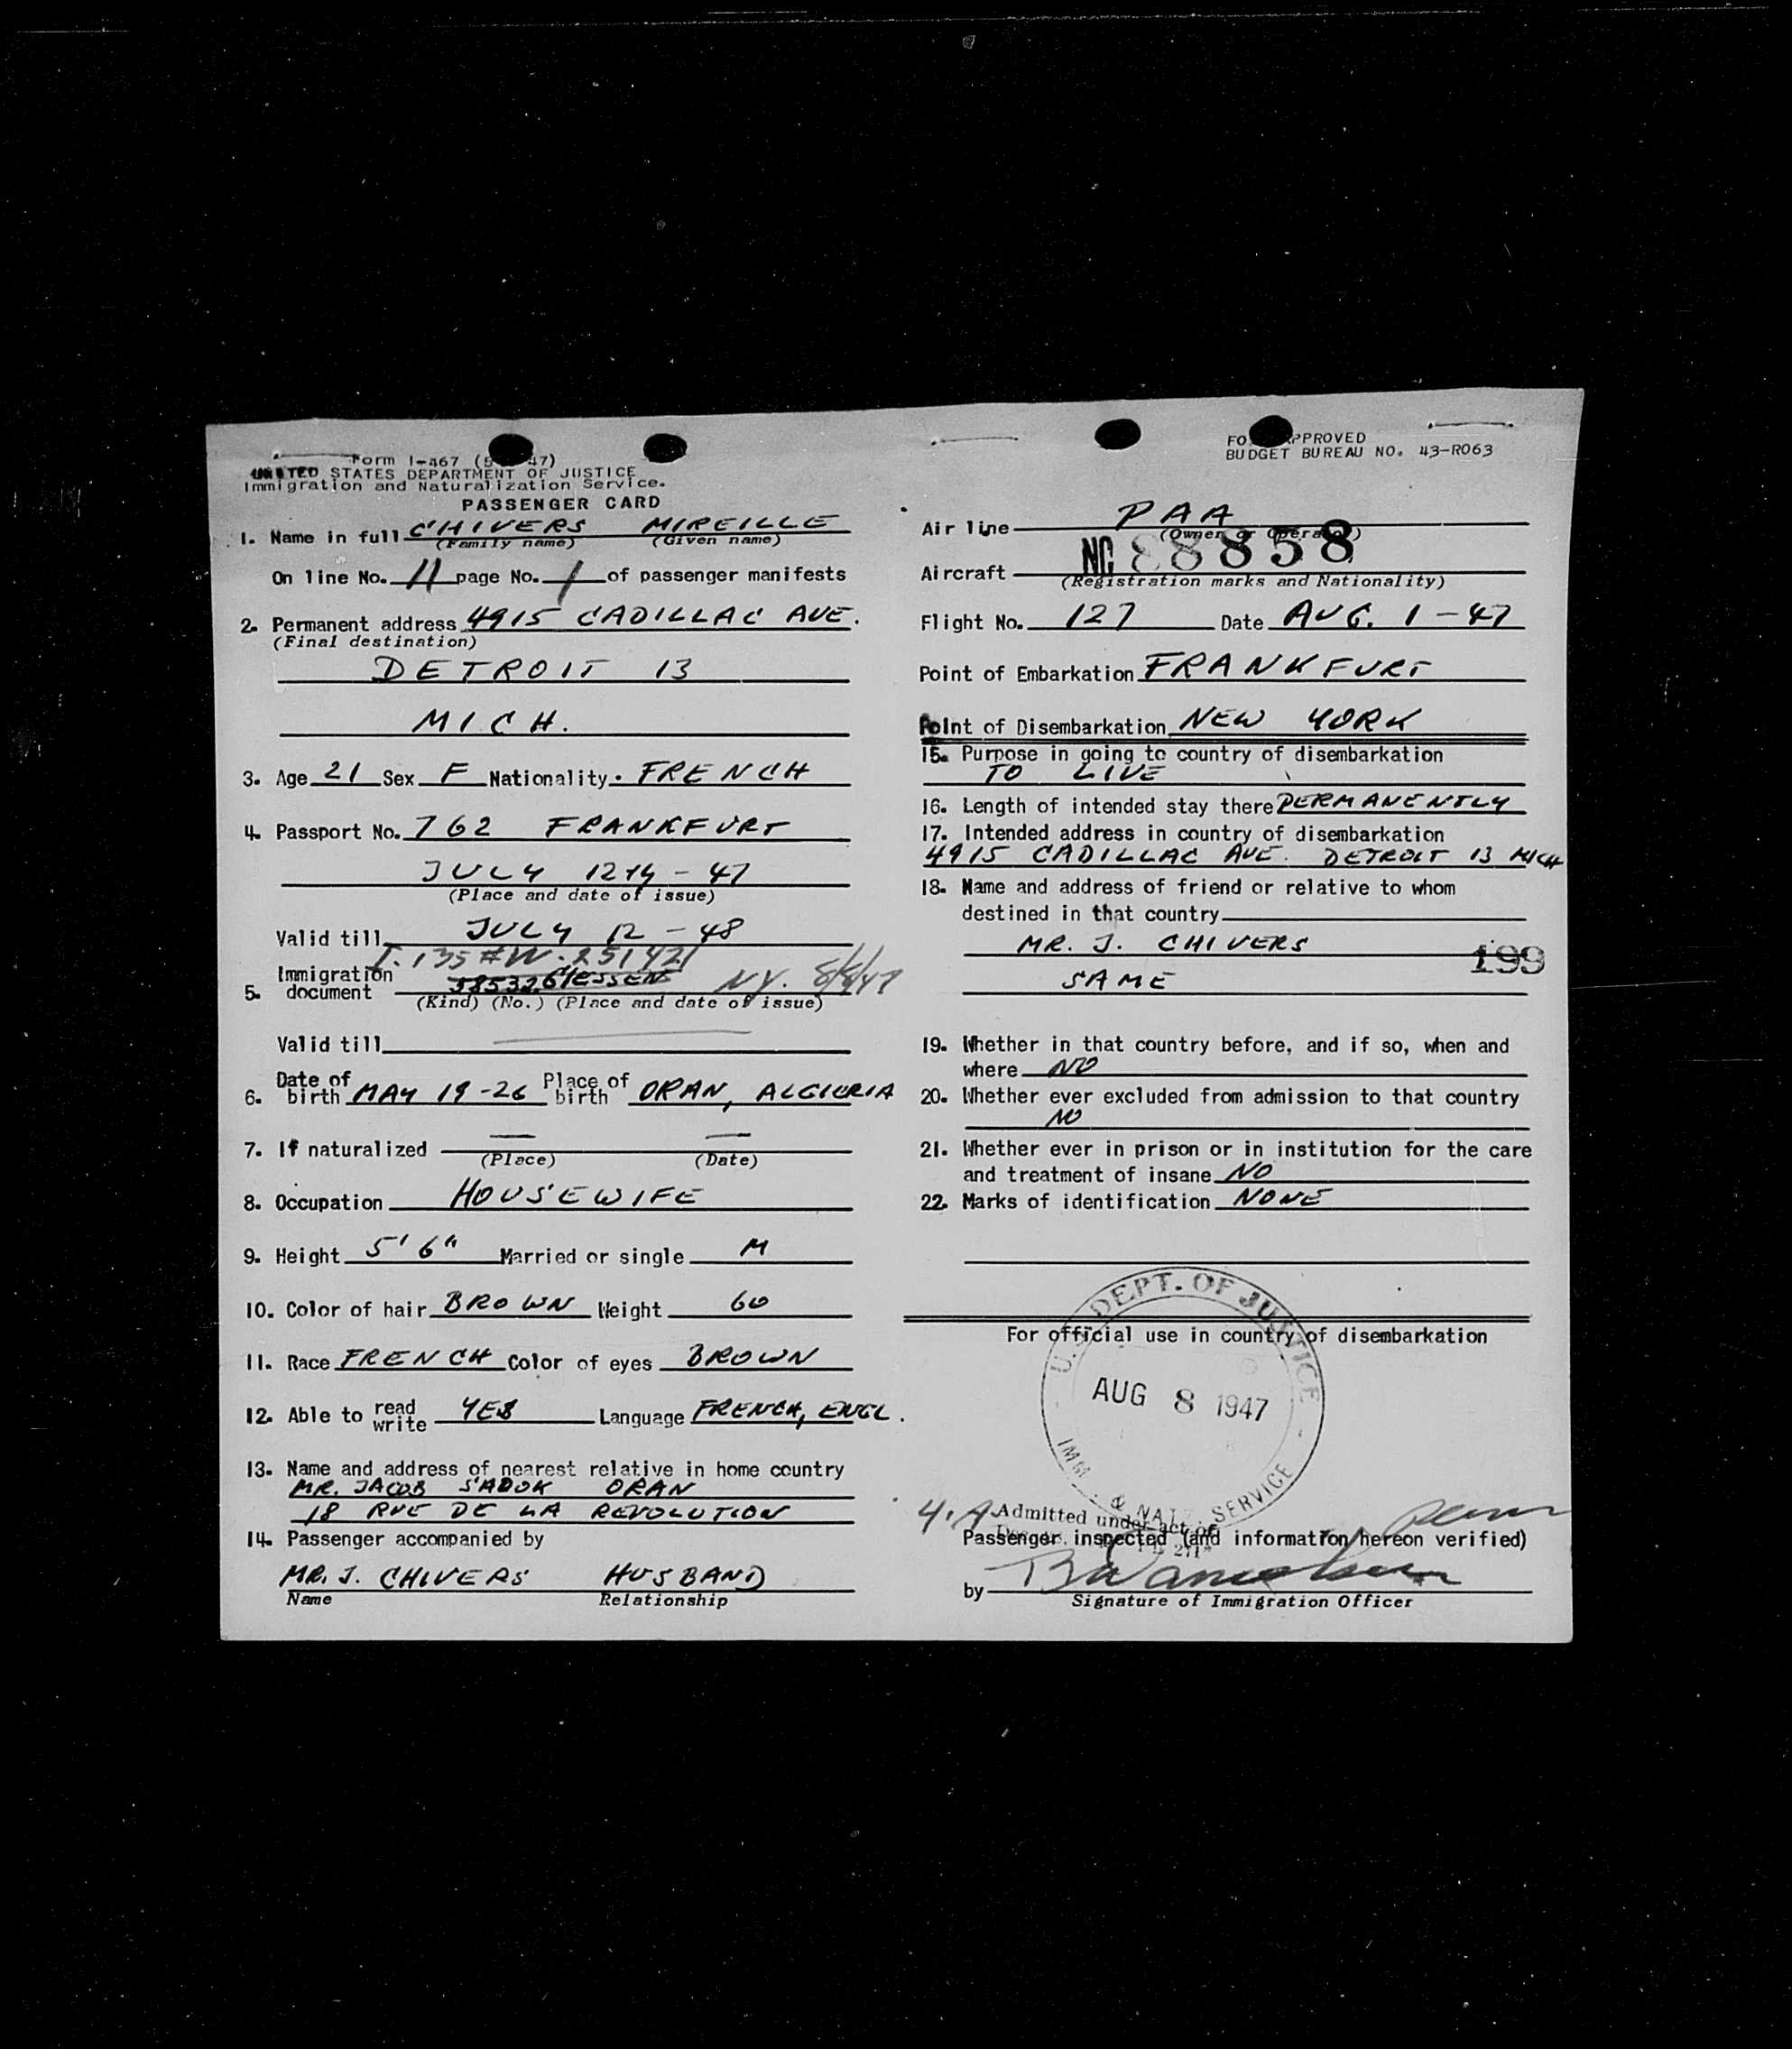 Form I-467 (5 47)
UNITED STATES DEPARTMENT OF JUSTICE
Immigration and Naturalization Service.
PASSENGER CARD
1. Name in full CHIVERS MIREILLE
(Family name) (Given name)
On line No. 11 page No. 1 of passenger manifests
2. Permanent address 4915 CADILLAC AVE.
(Final destination)
DETROIT 13
MICH.
3. Age 21 Sex F Nationality. FRENCH
4. Passport No. 762 FRANKFURT
JULY 12TH - 47
(Place and date of issue)
Valid till JULY 12 - 48
I. 135 #W. 251421
5. Immigration document GIESSEN NY. 8/8/47
(Kind) (No.) (Place and date of issue)
Valid till
6. Date of birth MAY 19-26 Place of birth ORAN, ALGIERIA
7. If naturalized
(Place) (Date)
8. Occupation HOUSEWIFE
9. Height 5' 6" Married or single M
10. Color of hair BROWN Weight 60
11. Race FRENCH Color of eyes BROWN
12. Able to read write YES Language FRENCH, ENGL.
13. Name and address of nearest relative in home country
MR. JACOB SADOK ORAN
18 RUE DE LA REVOLUTION
14. Passenger accompanied by
MR. J. CHIVERS HUSBAND
Name Relationship
FO PPROVED
BUDGET BUREAU NO. 43-R063
Air line PAA
(Owner or Operator)
Aircraft NC 88858
(Registration marks and Nationality)
Flight No. 127 Date AUG. 1 - 47
Point of Embarkation FRANKFURT
Point of Disembarkation NEW YORK
15. Purpose in going to country of disembarkation
TO LIVE
16. Length of intended stay there PERMANENTLY
17. Intended address in country of disembarkation
4915 CADILLAC AVE. DETROIT 13 MICH
18. Name and address of friend or relative to whom
destined in that country
MR. J. CHIVERS
199
SAME
19. Whether in that country before, and if so, when and
where NO
20. Whether ever excluded from admission to that country
NO
21. Whether ever in prison or in institution for the care
and treatment of insane NO
22. Marks of identification NONE
For official use in country of disembarkation
U.S. DEPT. OF JUSTICE
AUG 8 1947
IMM. & NAT. SERVICE
4.A Admitted under act of
Passenger inspected (and information hereon verified)
by
Signature of Immigration Officer